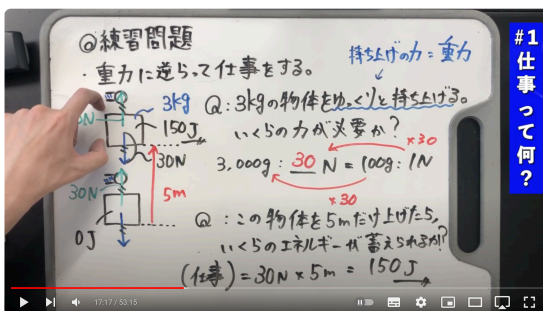 ◎練習問題
・重力に逆らって仕事をする。
持ち上げの力=重力
#1
仕事って何?
3kg
150J
30N
30N
5m
0J
Q:3kgの物体をゆっくりと持ち上げる。
いくらの力が必要か?
×30
3,000g:30N=100g:1N
×30
Q:この物体を5mだけ上げたら,
いくらのエネルギーが蓄えられるか?
(仕事)=30N×5m=150J
17:17 / 53:15